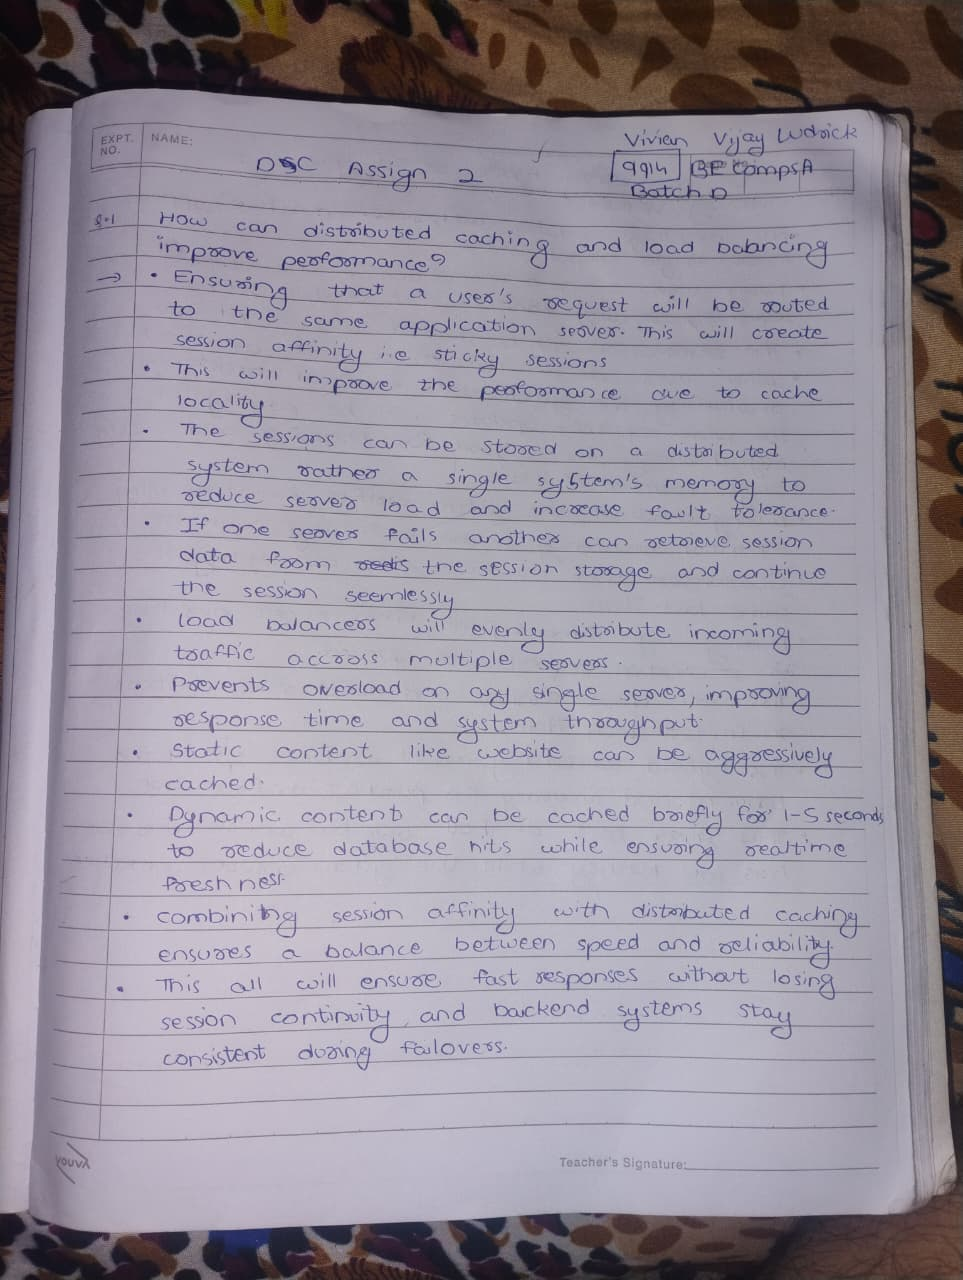 EXPT. NO.
NAME:
Vivian Vijay Ludrick
DSC Assign 2
9914 BE CompsA
Batch D
Q.1 How can distributed caching and load balancing
improve performance?
→ • Ensuring that a user's request will be routed
to the same application server. This will create
session affinity i.e sticky sessions
• This will improve the performance due to cache
locality.
• The sessions can be stored on a distributed
system rather a single system's memory to
reduce server load and increase fault tolerance.
• If one server fails another can retrieve session
data from the session storage and continue
the session seemlessly
• load balancers will evenly distribute incoming
traffic accross multiple servers.
• Prevents overload on any single server, improving
response time and system throughput.
• Static content like website can be aggressively
cached.
• Dynamic content can be cached briefly for 1-5 seconds
to reduce database hits while ensuring realtime
freshness.
• combining session affinity with distributed caching
ensures a balance between speed and reliability.
• This all will ensure fast responses without losing
session continuity, and backend systems stay
consistent during failovers.
YOUVA
Teacher's Signature: